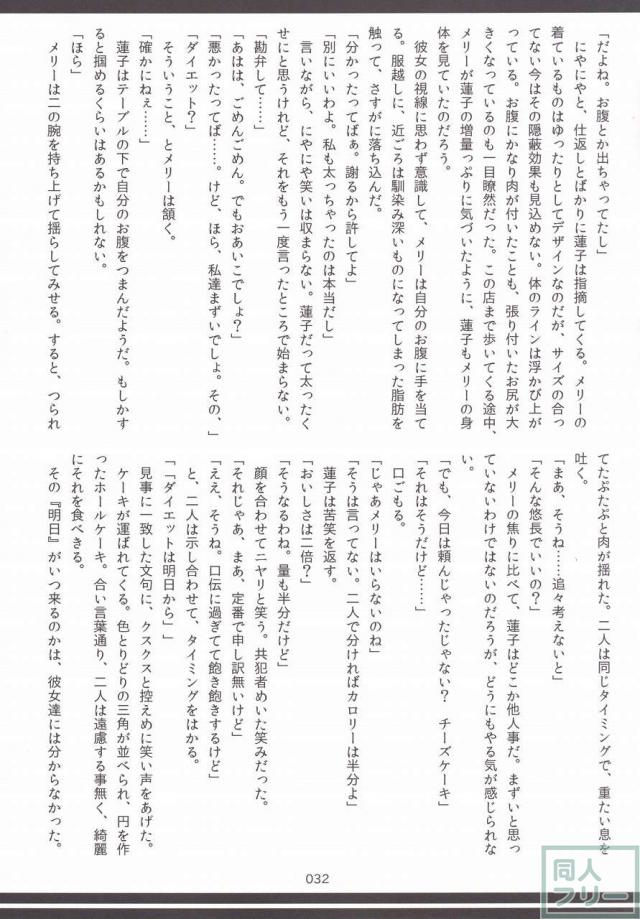 「だよね。お腹とか出ちゃってたし」
　にやにやと、仕返しとばかりに蓮子は指摘してくる。メリーの
着ているものはゆったりとしてデザインなのだが、サイズの合っ
てない今はその隠蔽効果も見込めない。体のラインは浮かび上が
っている。お腹にかなり肉が付いたことも、張り付いたお尻が大
きくなっているのも一目瞭然だった。この店まで歩いてくる途中、
メリーが蓮子の増量っぷりに気づいたように、蓮子もメリーの身
体を見ていたのだろう。
　彼女の視線に思わず意識して、メリーは自分のお腹に手を当て
る。服越しに、近ごろは馴染み深いものになってしまった脂肪を
触って、さすがに落ち込んだ。
「分かったってばぁ。謝るから許してよ」
「別にいいわよ。私も太っちゃったのは本当だし」
　言いながら、にやにや笑いは収まらない。蓮子だって太ったく
せにと思うけれど、それをもう一度言ったところで始まらない。
「勘弁して……」
「あはは、ごめんごめん。でもおあいこでしょ？」
「悪かったってば……。けど、ほら、私達まずいでしょ。その、」
「ダイエット？」
　そういうこと、とメリーは頷く。
「確かにねぇ……」
　蓮子はテーブルの下で自分のお腹をつまんだようだ。もしかす
ると掴めるくらいはあるかもしれない。
「ほら」
　メリーは二の腕を持ち上げて揺らしてみせる。すると、つられ
てたぷたぷと肉が揺れた。二人は同じタイミングで、重たい息を
吐く。
「まあ、そうね……追々考えないと」
「そんな悠長でいいの？」
　メリーの焦りに比べて、蓮子はどこか他人事だ。まずいと思っ
ていないわけではないのだろうが、どうにもやる気が感じられな
い。
「でも、今日は頼んじゃったじゃない？　チーズケーキ」
「それはそうだけど……」
　口ごもる。
「じゃあメリーはいらないのね」
「そうは言ってない。二人で分ければカロリーは半分よ」
　蓮子は苦笑を返す。
「おいしさは二倍？」
「そうなるわね。量も半分だけど」
　顔を合わせてニヤリと笑う。共犯者めいた笑みだった。
「それじゃあ、まあ、定番で申し訳無いけど」
「ええ、そうね。口伝に過ぎてて飽き飽きするけど」
　と、二人は示し合わせて、タイミングをはかる。
「「ダイエットは明日から」」
　見事に一致した文句に、クスクスと控えめに笑い声をあげた。
　ケーキが運ばれてくる。色とりどりの三角が並べられ、円を作
ったホールケーキ。合い言葉通り、二人は遠慮する事無く、綺麗
にそれを食べきる。
　その『明日』がいつ来るのかは、彼女達には分からなかった。
032
同人
フリー